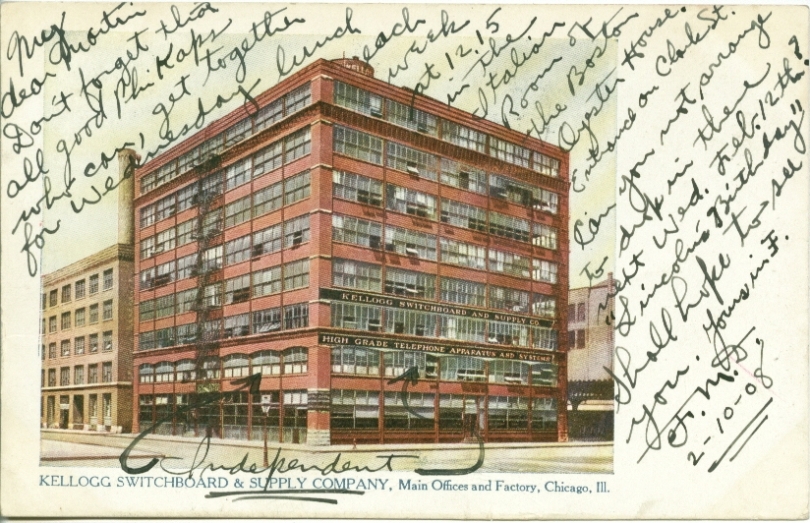 My
dear Martin
Don't forget that
all good Phi Kaps
who can, get together
for Wednesday lunch each
week
at 12.15
in the
Italian
Room of
the Boston
Oyster House.
Entrance on Clark St.
Can you not arrange
to drop in there
next Wed. Feb. 12th?
"Lincoln's Birthday"
Shall hope to see
you. Yours in F.
F. M. D.
2-10-08
KELLOGG SWITCHBOARD AND SUPPLY CO.
HIGH GRADE TELEPHONE APPARATUS AND SYSTEMS
Independent
KELLOGG SWITCHBOARD & SUPPLY COMPANY, Main Offices and Factory, Chicago, Ill.